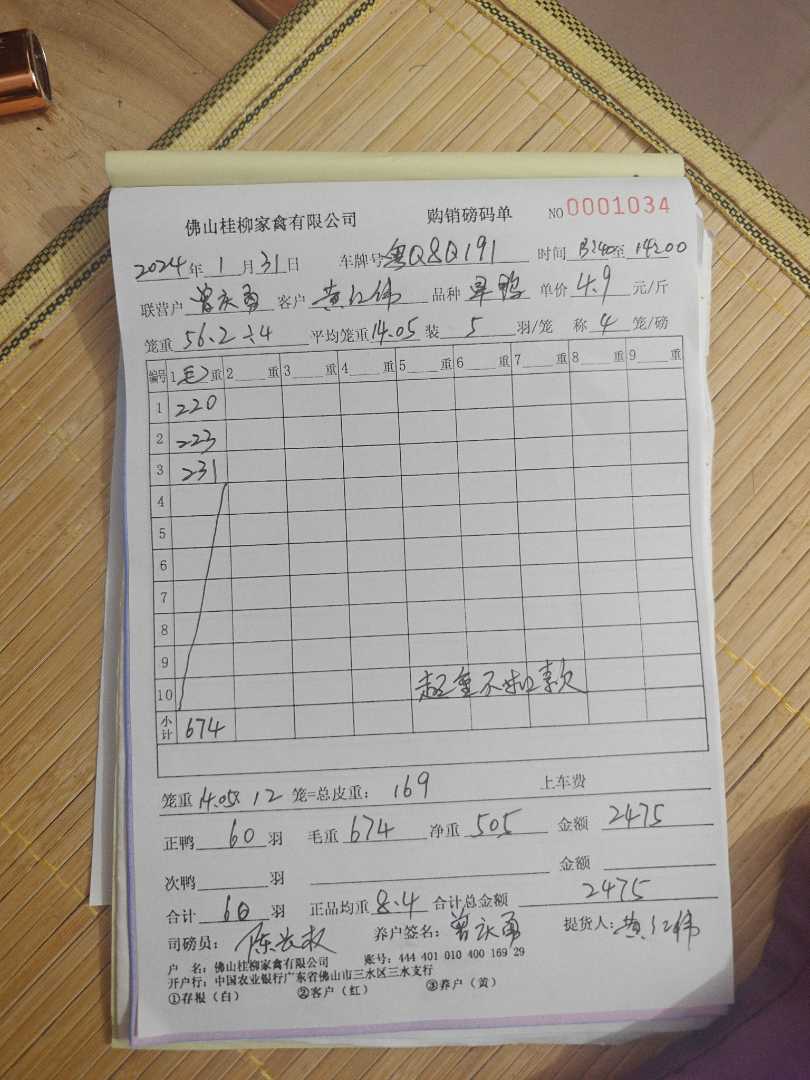 佛山桂柳家禽有限公司 购销磅码单 NO 0001034
2024年 1月31日 车牌号 粤Q8Q191 时间 13:40至 14:00
联营户 曾庆勇 客户 黄红伟 品种 旱鸭 单价 4.9 元/斤
笼重 56.2÷4 平均笼重 14.05 装 5 羽/笼 称 4 笼/磅
编号 1 毛 重 2 重 3 重 4 重 5 重 6 重 7 重 8 重 9 重
1 220
2 223
3 231
4
5
6
7
8
9
10 超重不扣款
小计 674
笼重 14.05x 12 笼=总皮重: 169 上车费
正鸭 60 羽 毛重 674 净重 505 金额 2475
次鸭 羽 金额
合计 60 羽 正品均重 8.4 合计总金额 2475
司磅员: 养户签名: 曾庆勇 提货人: 黄红伟
户 名: 佛山桂柳家禽有限公司 账号: 444 401 010 400 169 29
开户行: 中国农业银行广东省佛山市三水区三水支行
①存根(白) ②客户(红) ③养户(黄)